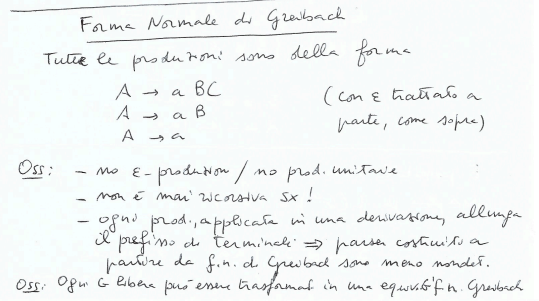 Forma Normale di Greibach
Tutte le produzioni sono della forma
A → a BC (con ε trattato a
A → a B parte, come sopra)
A → a
Oss: - no ε-produzioni / no prod. unitarie
- non è mai ricorsiva sx !
- ogni prod., applicata in una derivazione, allunga
il prefisso di terminali ⇒ parser costruito a
partire da f.n. di Greibach sono meno nondet.
Oss: Ogni G libera può essere trasformat in una equiv. f.n. Greibach